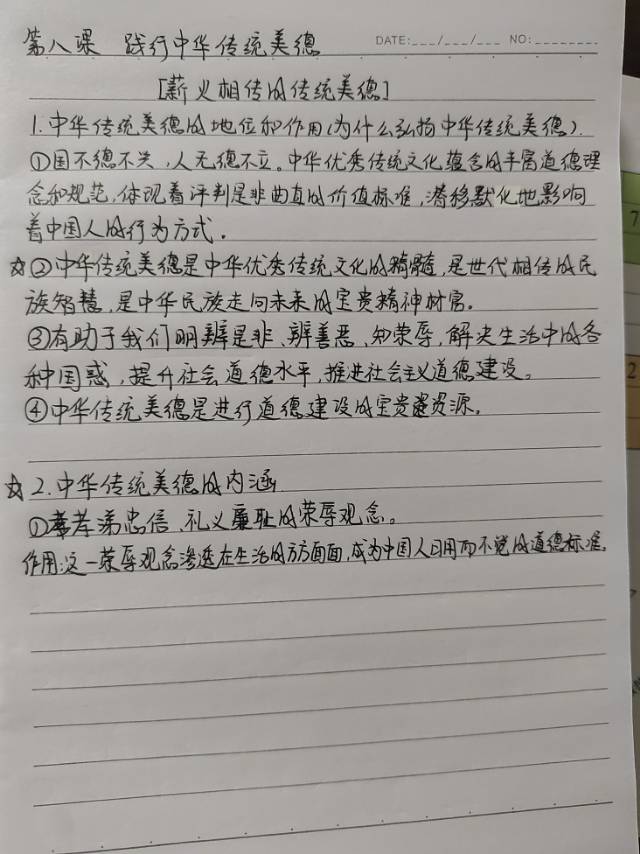 第八课 践行中华传统美德 DATE:___/___/___ NO:________
[薪火相传的传统美德]
1.中华传统美德的地位和作用(为什么弘扬中华传统美德).
①国不德不兴,人无德不立。中华优秀传统文化蕴含的丰富道德理
念和规范,体现着评判是非曲直的价值标准,潜移默化地影响
着中国人的行为方式.
☆②中华传统美德是中华优秀传统文化的精髓,是世代相传的民
族智慧,是中华民族走向未来的宝贵精神财富.
③有助于我们明辨是非、辨善恶、知荣辱,解决生活中的各
种困惑,提升社会道德水平,推进社会主义道德建设。
④中华传统美德是进行道德建设的宝贵资源。
☆2.中华传统美德的内涵
①孝悌忠信、礼义廉耻的荣辱观念。
作用:这一荣辱观念渗透在生活的方方面面,成为中国人日用而不觉的道德标准。